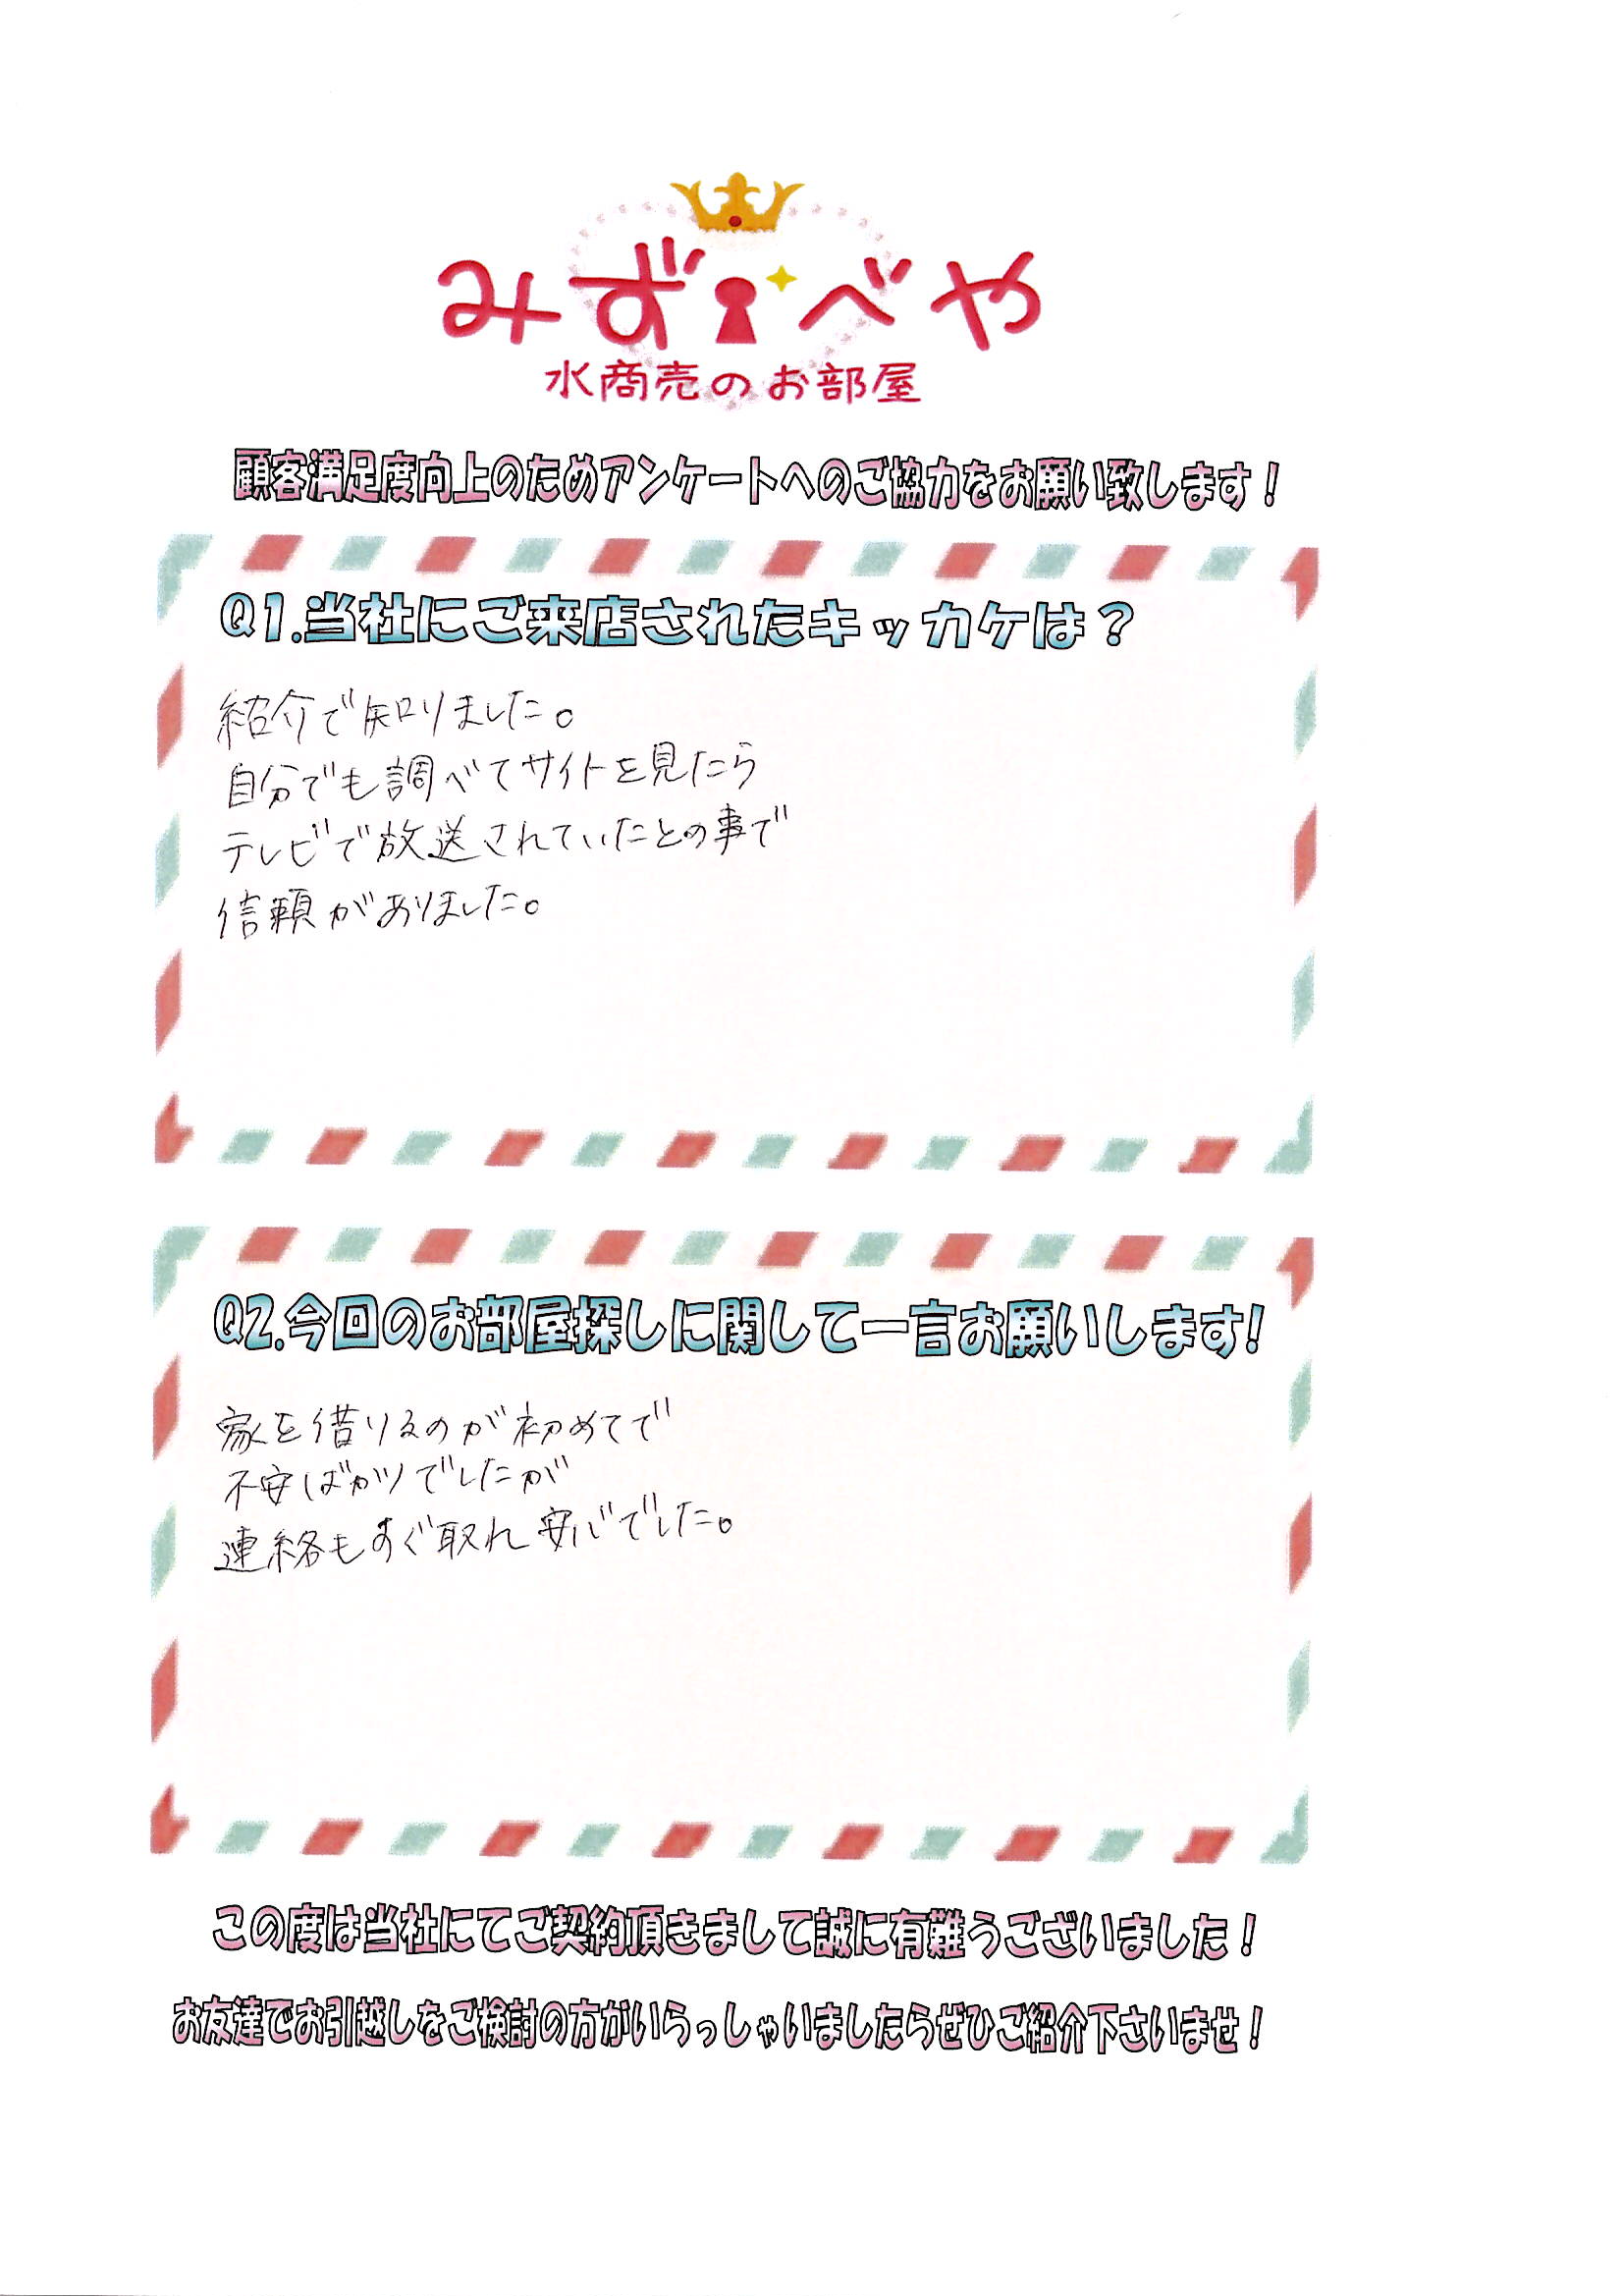 みずべや
水商売のお部屋
顧客満足度向上のためアンケートへのご協力をお願い致します！
Q1.当社にご来店されたキッカケは？
紹介で知りました。
自分でも調べてサイトを見たら
テレビで放送されていたとの事で
信頼がありました。
Q2.今回のお部屋探しに関して一言お願いします!
家を借りるのが初めてで
不安ばかりでしたが
連絡もすぐ取れ安心でした。
この度は当社にてご契約頂きまして誠に有難うございました！
お友達でお引越しをご検討の方がいらっしゃいましたらぜひご紹介下さいませ！